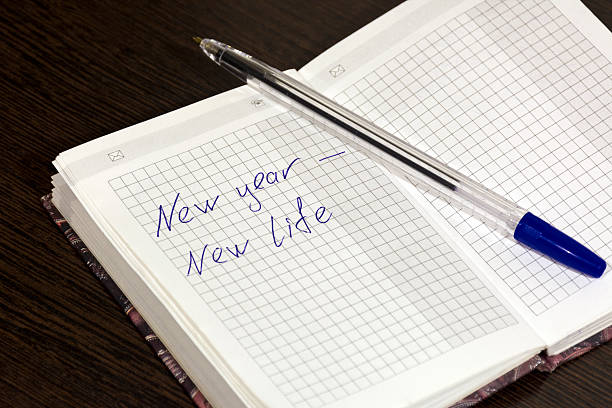 New year —
New life